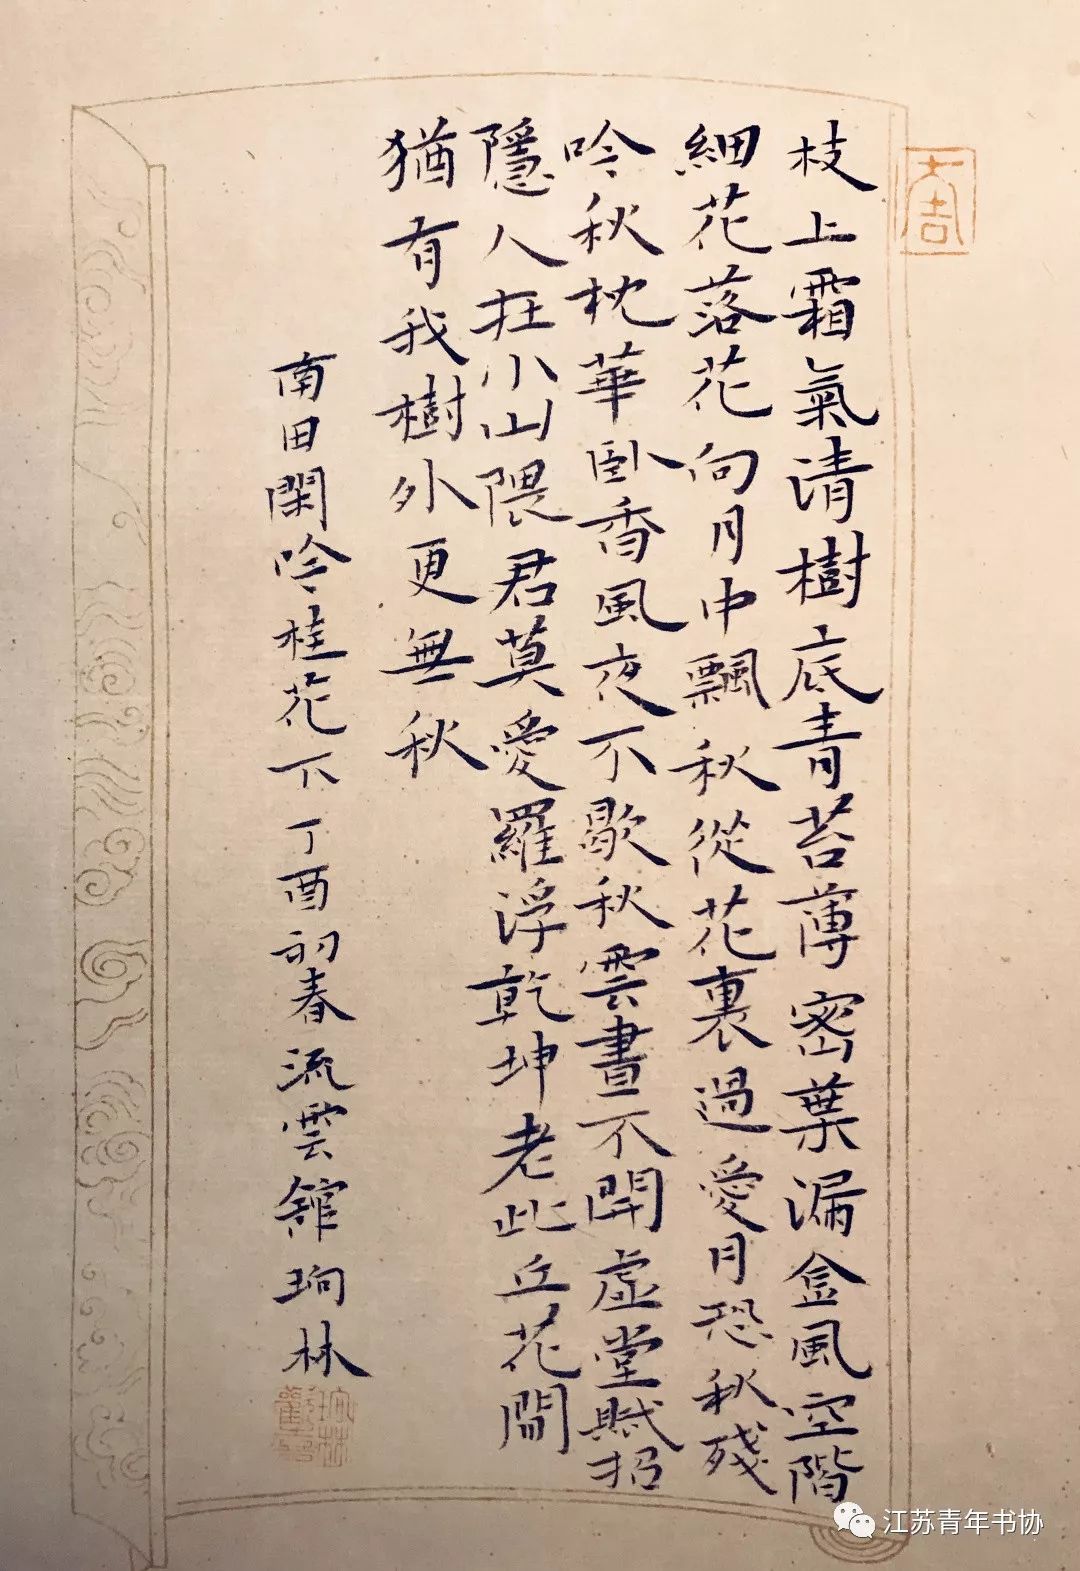 枝上霜氣清樹底青苔薄密葉漏金風空階
細花落花向月中飄秋從花裏過愛月恐秋殘
吟秋枕華卧香風夜不歇秋雲晝不開虛堂賦招
隱人在小山隈君莫愛羅浮乾坤老此丘花間
猶有我樹外更無秋
南田閑吟桂花下丁酉初春流雲館珣林
大吉
江苏青年书协